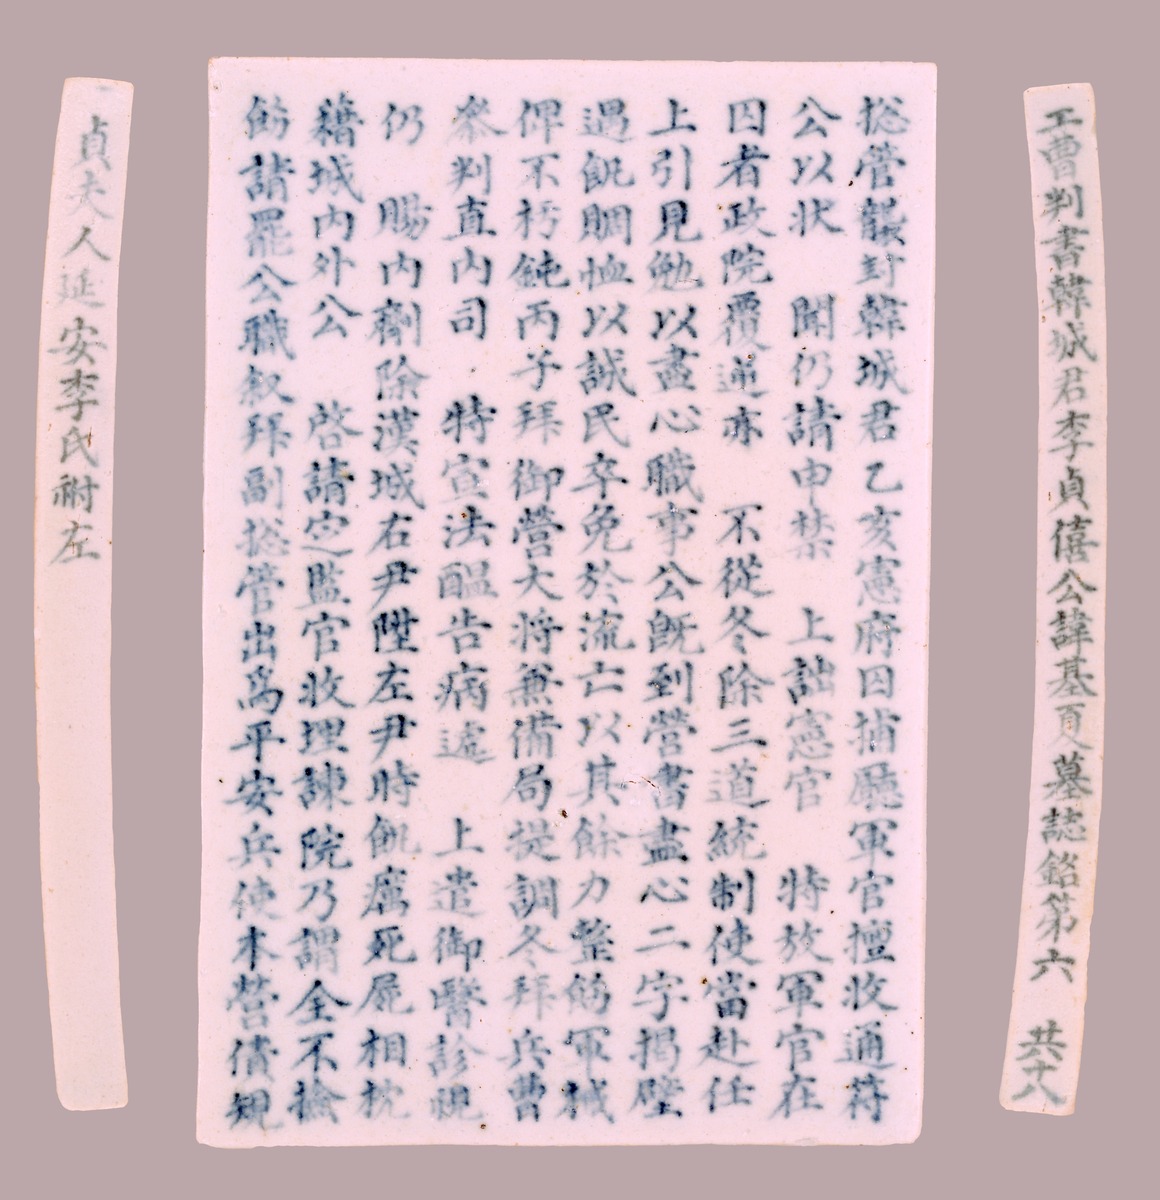 工曹判書韓城君李貞僖公諱基夏墓誌銘第六　共十八
摠管襲封韓城君乙亥憲府囚捕廳軍官擅收通符
公以狀　聞仍請申禁　上詘憲官　特放軍官在
囚者政院覆逆亦　不從冬除三道統制使當赴任
上引見勉以盡心職事公旣到營書盡心二字揭壁
遇飢賙恤以誠民卒免於流亡以其餘力整飭軍械
俾不朽鈍丙子拜御營大將兼備局提調冬拜兵曹
參判直內司　特宣法醞告病遞　上遣御醫診視
仍　賜內劑除漢城右尹陞左尹時飢癘死屍相枕
藉城內外公　啓請定監官收埋諫院乃謂全不撿
飭請罷公職叙拜副摠管出爲平安兵使本營債規
貞夫人延安李氏祔左